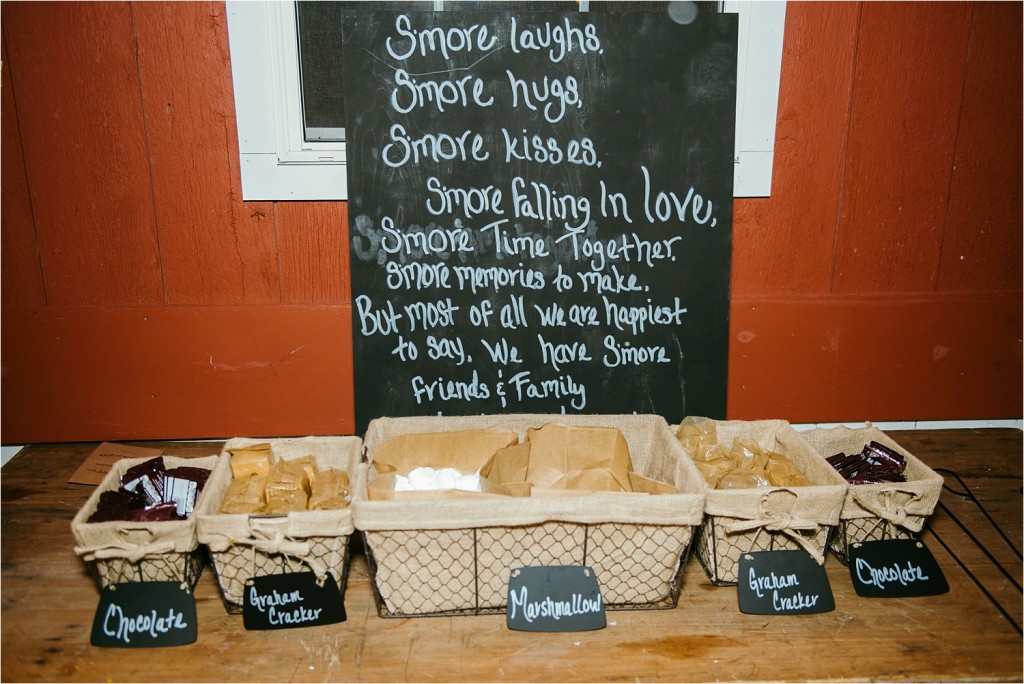 S'more laughs.
S'more hugs,
S'more kisses,
S'more falling In love,
S'more Time Together.
S'more memories to make.
But most of all we are happiest
to say. We have S'more
friends & Family
Chocolate
Graham
Cracker
Marshmallow
Graham
Cracker
Chocolate